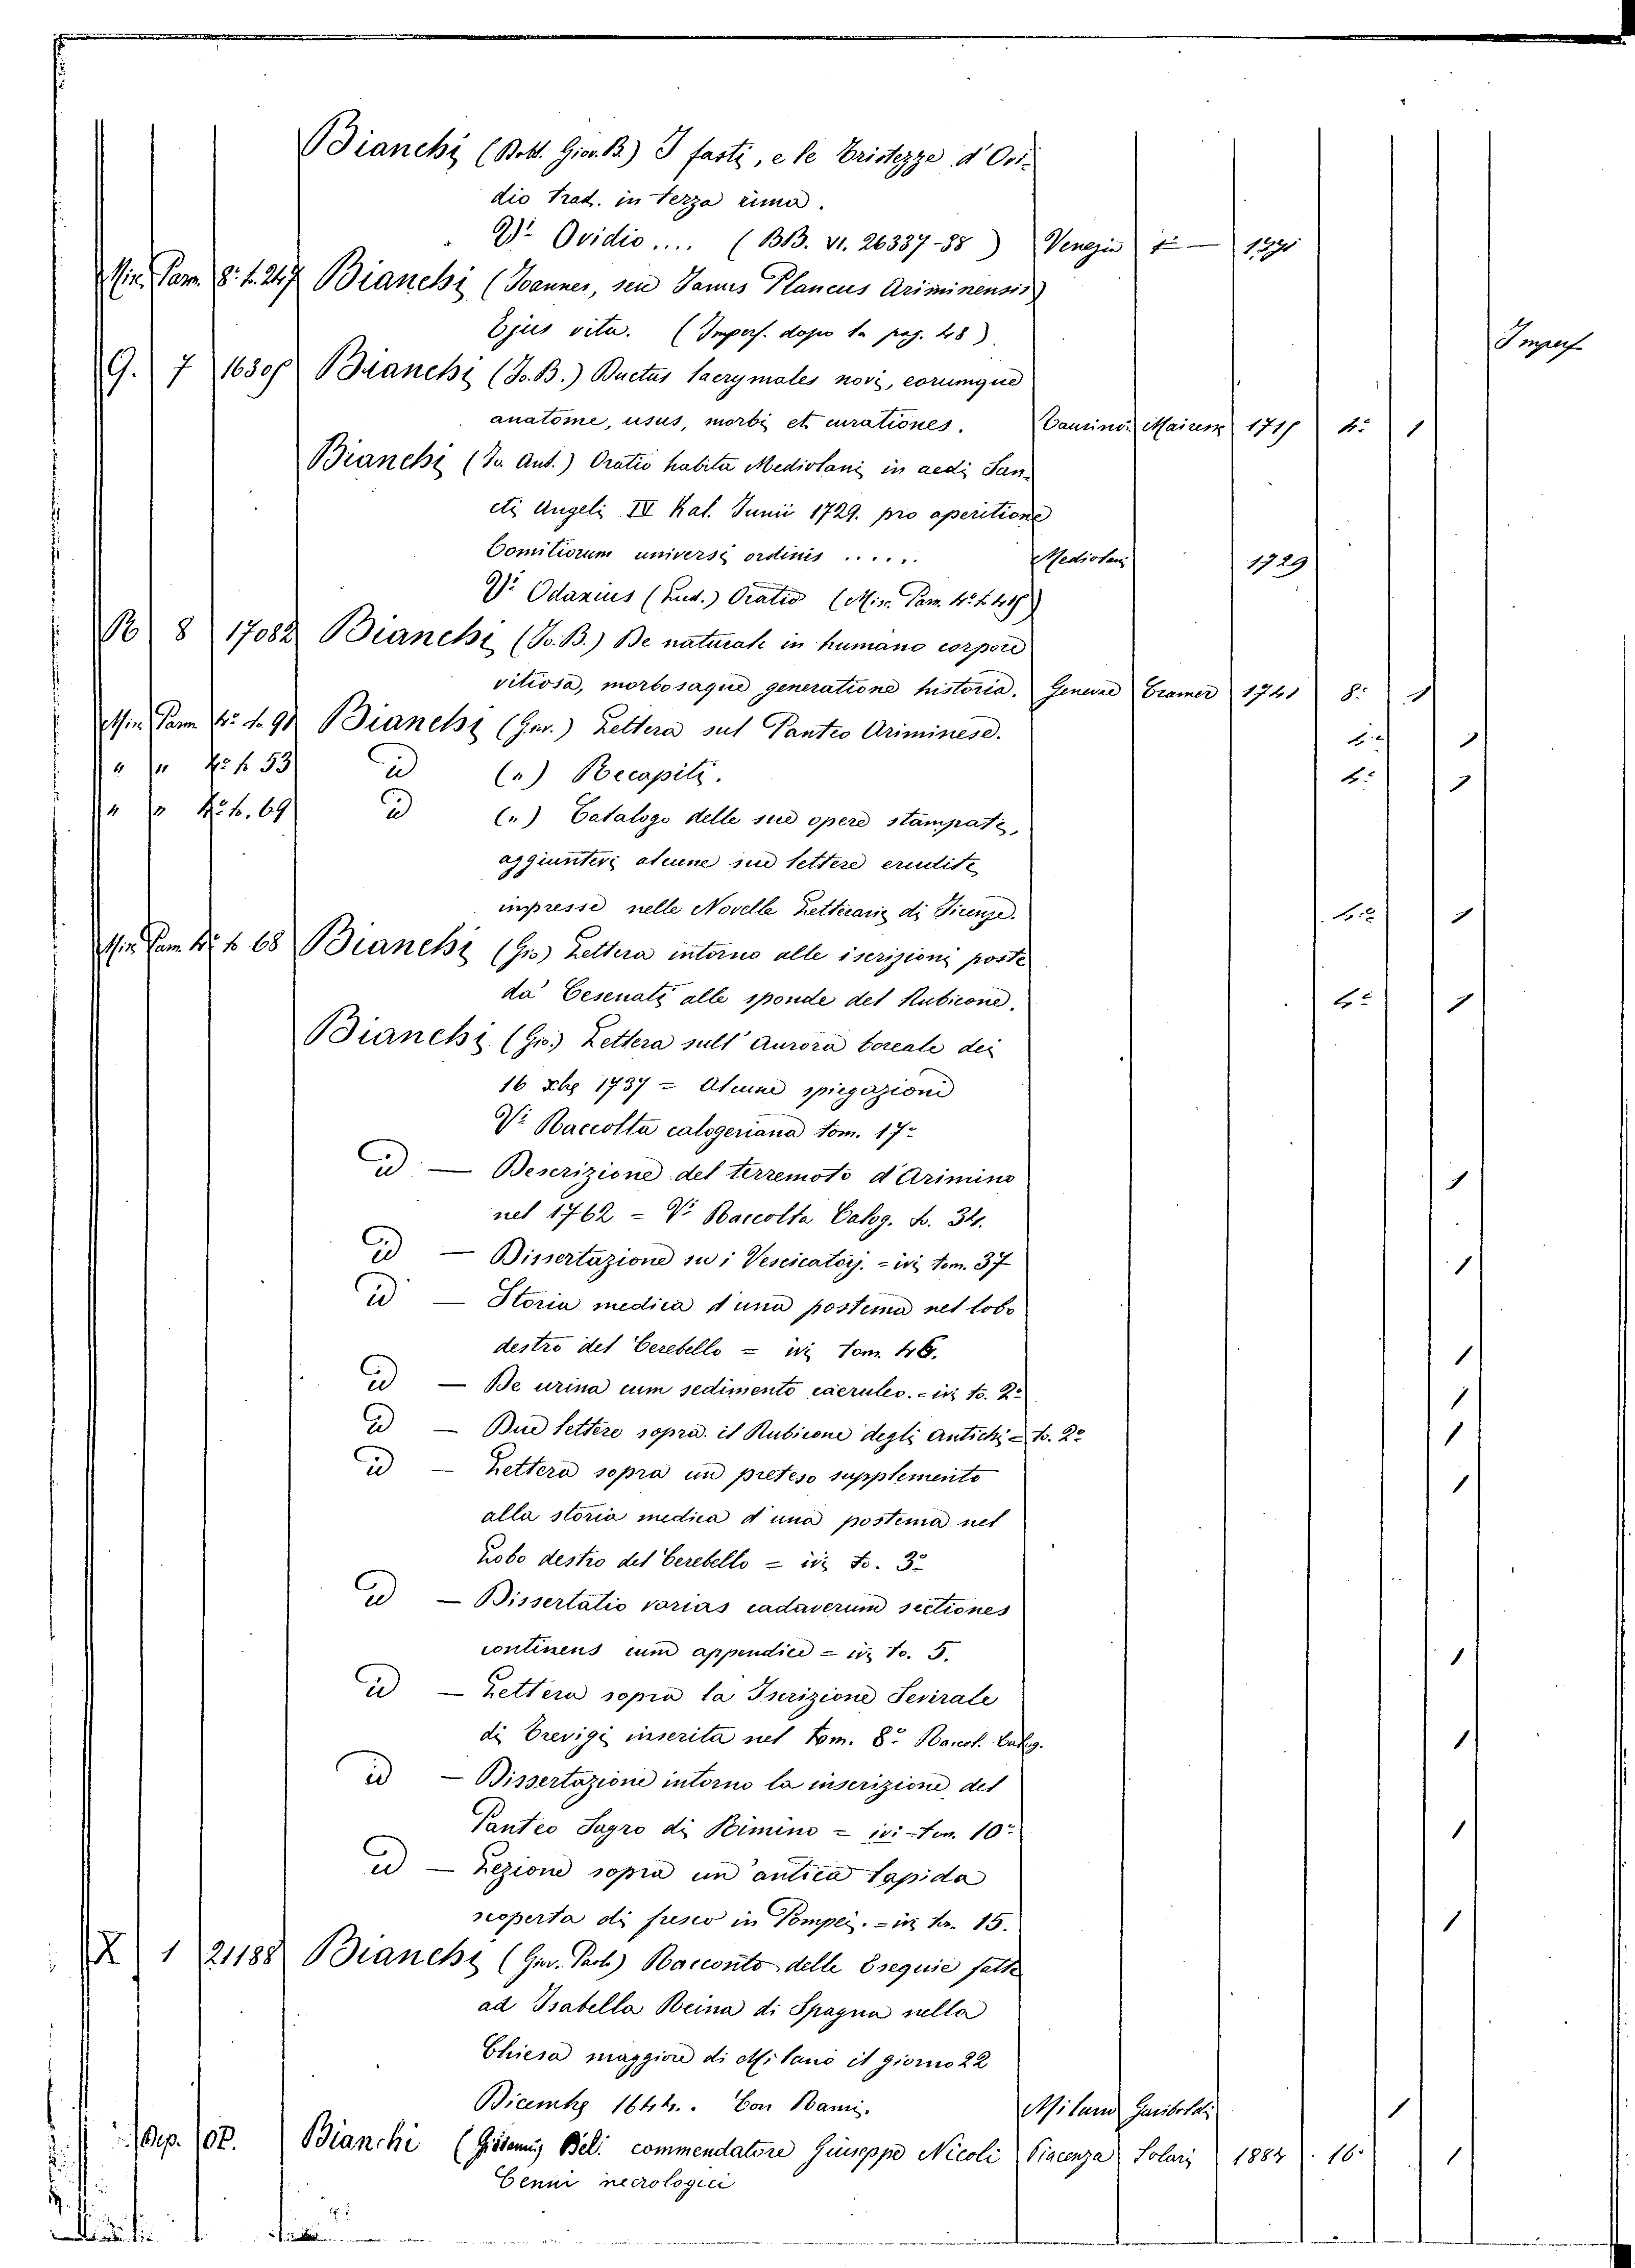 Bianchi (Dott. Giov. B.) I fasti, e le Tristezze d'Ovi-
dio trad. in terza rima.
V.r Ovidio .... (BB. VI. 26337-38) Venezia
Min. Parm. 8.º t. 247 Bianchi (Joannes, seu Janus Plancus Ariminensis)
Ejus vita. (Imperf. dopo la pag. 48). Imperf.
G. 7 Bianchi (Jo. B.) Ductus lacrymales novi, eorumque
anatome, usus, morbi et curationes. Taurino. Mairesse 1715 4.º 1
Bianchi (Jo. Ant.) Oratio habita Mediolani in aedi San-
cti Angeli IV Kal. Junii 1729. pro aperitione
Comitiorum universi ordinis ...... Mediolani 1729
V.r Odanius (Lud.) Oratio (Min. Parm. 4.º t.
R 8 17082 Bianchi (Jo. B.) De naturale in humano corpore
vitiosa, morbosaque generatione historia. Genevae Cramer 1741 8.º 1
Min. Parm. 4.º t. 91 Bianchi (Giov.) Lettera sul Panteo Ariminese. 4.º 1
" " 4.º t. 53 id (") Recapiti. 4.º 1
" " 4.º t. 69 id (") Catalogo delle sue opere stampate,
aggiuntevi alcune sue lettere erudite
impresse nelle Novelle Letterarie di Firenze. 4.º 1
Min. Parm. 4.º t. 68 Bianchi (Gio) Lettera intorno alle iscrizioni poste
da' Cesenati alle sponde del Rubicone. 4.º 1
Bianchi (Gio.) Lettera sull' Aurora boreale dei
16 Xbre 1737 = Alcune spiegazioni
V.i Raccolta calogeriana tom. 17.º
id — Descrizione del terremoto d'Arimino 1
nel 1762 = V.i Raccolta Calog. t. 34.
id — Dissertazione su i Vescicatorj. = ivi tom. 37 1
id — Storia medica d'una postema nel lobo
destro del Cerebello = ivi tom. 46. 1
id — De urina cum sedimento caeruleo. = ivi to. 2.º 1
id — Due lettere sopra il Rubicone degli Antichi = to. 2.º 1
id — Lettera sopra un preteso supplemento 1
alla storia medica d'una postema nel
Lobo destro del Cerebello = ivi to. 3.º
id — Dissertatio varias cadaverum sectiones
continens cum appendice = ivi to. 5. 1
id — Lettera sopra la Iscrizione Sevirale
di Trevigi inserita nel tom. 8.º Raccol. Calog. 1
id — Dissertazione intorno la inscrizione del
Panteo Sagro di Rimino = ivi - tom. 10.º 1
id — Lezione sopra un' antica lapida
scoperta di fresco in Pompei. = ivi to. 15. 1
X 1 21188 Bianchi (Giov. Paolo) Racconto delle Esequie fatte
ad Isabella Reina di Spagna nella
Chiesa maggiore di Milano il giorno 22
Dicembre 1644.. Con Rami. Milano Gariboldi 1
Dep. OP. Bianchi (Giovanni) Del: commendatore Giuseppe Nicoli Piacenza Solari 1884 16.º 1
Cenni necrologici